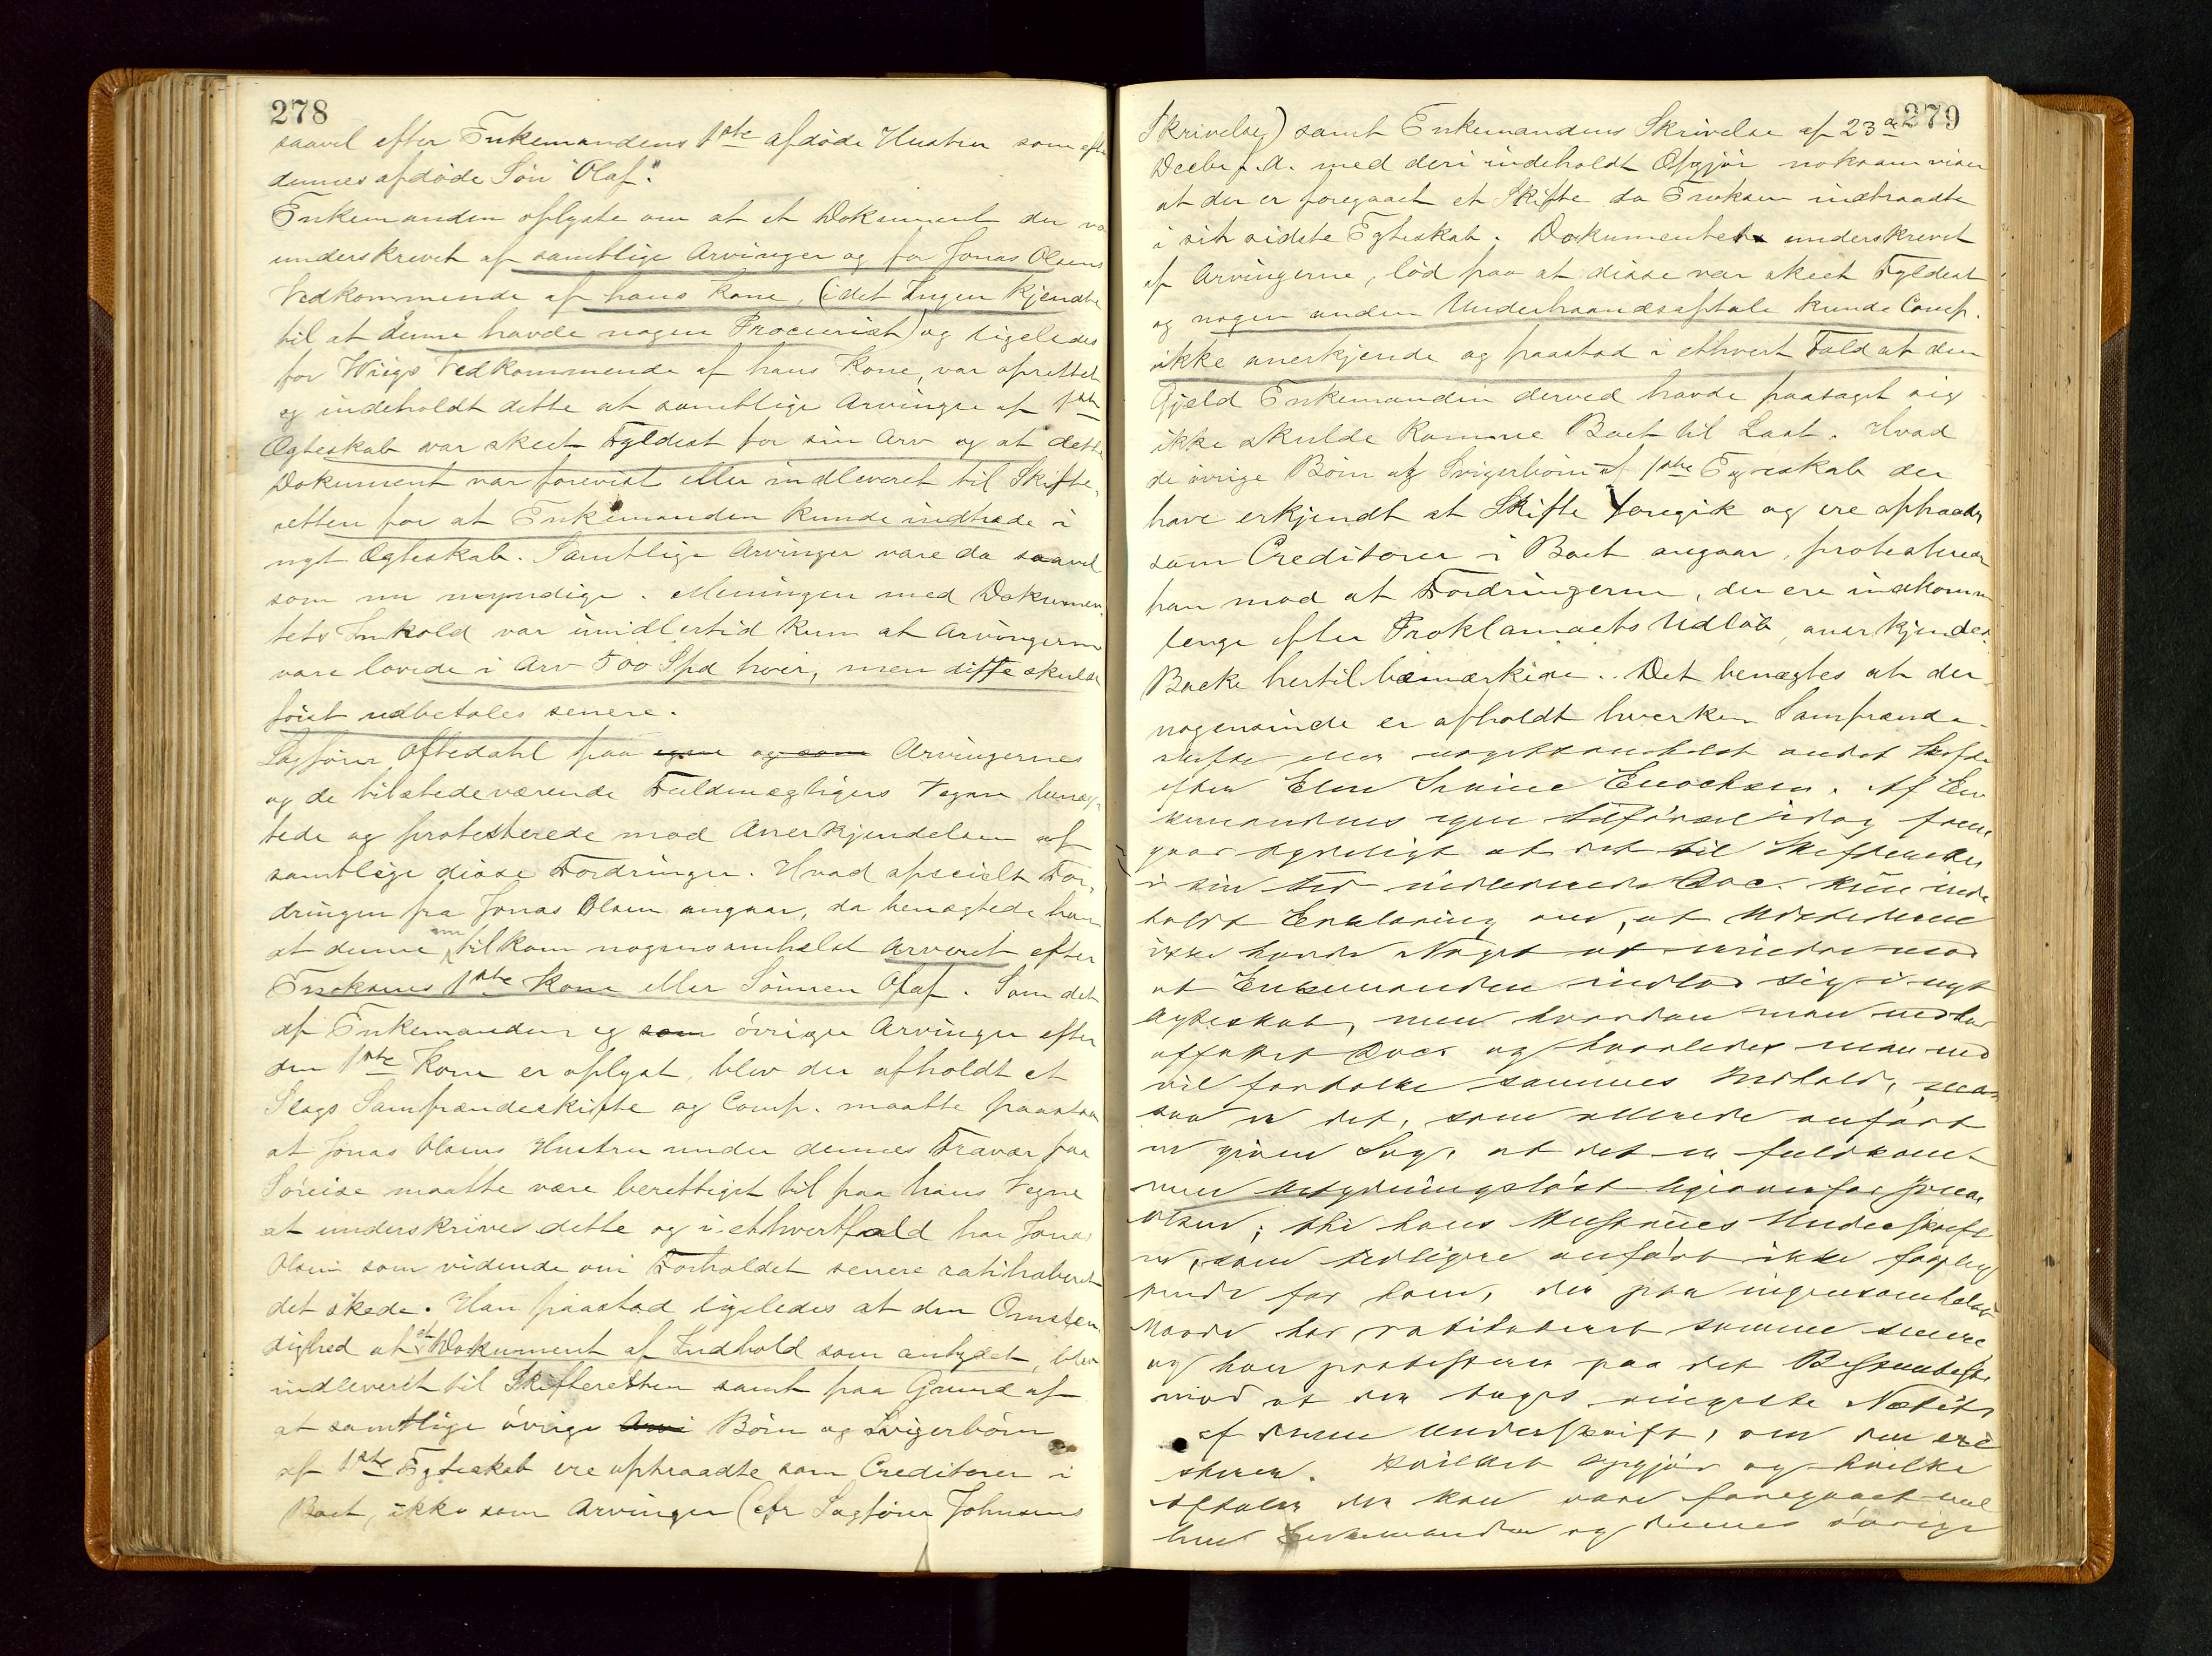 278
saavel efter Enkemandens 1ste afdøde Hustru som efter
dennes afdøde Søn "Olaf".
Enkemanden oplyste om at et Dokument der var
underskrevet af samtlige Arvinger og for Jonas Olsens
Vedkommende af hans Kone, (idet Ingen kjendte
til at denne havde nogen Procurist) og ligeledes
for Wiigs Vedkommende af hans Kone, var oprettet
og indeholdt dette at samtlige Arvinger af 1ste
Ægteskab var skeet Fyldest for sin Arv og at dette
Dokument var forevist eller indleveret til Skifte-
retten for at Enkemanden kunde indtræde i
nyt Ægteskab. Samtlige Arvinger vare da saavel
som nu myndige. Meningen med Dokumen-
tets Inhold var imidlertid kun at Arvingerne
vare lovede i Arv 500 Spd hver, men disse skulde
først udbetales senere.
Sagfører Oftedahl paa egne og som Arvingernes
og de tilstedeværende Fuldmægtigers Vegne benæg-
tede og protesterede mod Anerkjendelsen af
samtlige disse Fordringer. Hvad specielt For-
dringen fra Jonas Olsen angaar, da benægtede han
at denne tilkom nogensomhelst Arveret efter
Enoksens 1ste Kone eller Sønnen Olaf. Som det
af Enkemanden og som øvrige Arvinger efter
den 1ste Kone er oplyst, blev der afholdt et
Slags Samfrændeskifte og Comp. maatte paastaa
at Jonas Olsens Hustru under dennes Fravær paa
Søreise maatte være berettiget til paa hans Vegne
at underskrive dette og i ethvertfald har Jonas
Olsen som vidende om Forholdet senere ratihaberet
det skede. Han paastod ligeledes at den Omstæn-
dighed at et Dokument af Indhold som antydet, blev
indleveret til Skifteretten samt paa Grund af
at samtlige øvrige Arvi Børn og Svigerbørn
af 1ste Egteskab ere optraadte som Creditorer i
Boet, ikke som Arvinger (cfr Sagfører Johnsens
279
Skrivelse) samt Enkemandens Skrivelse af 23de
Decbr f. A. med deri indeholdt Opgjør noksom viser
at der er foregaaet et Skifte da Enoksen indtraadte
i sit sidste Egteskab. Dokumentet underskrevet
af Arvingerne, lød paa at disse var skeet Fyldest
og nogen anden Underhaandsaftale kunde Comp.
ikke anerkjende og paastod i ethvert Fald at den
Gjæld Enkemanden derved havde paataget sig
ikke skulde komme Boet til Last. Hvad
de øvrige Børn og Svigerbørn af 1ste Egteskab der
have erkjendt at Skifte foregik og ere optraadt
som Creditorer i Boet angaar, protesterer
han mod at Fordringerne, der ere indkomne
lenge efter Proklamaets Udløb, anerkjendes.
Backe hertil bemærkede. Det benægtes at der
nogensinde er afholdt hverken Samfrænde-
skifte eller nogetsomhelst andet Skifte
efter Elen Serine Enochsen. Af En-
kemandens egen Tilførsel idag frem
gaar tydeligt at det til Skifteretten
i sin Tid indleverede Doc. kun inde
holdt Erklæring om, at Udstederne
ikke havde Noget at erindre mod
at Enkemanden indlod sig i nyt
Ægteskab, men hvordan man end har
affattet Doc. og hvorledes man end
vil fortolke sammes Indhold,
saa er det, som allerede anført
en given Sag, at det er fuldkom-
men betydningsløst ligeoverfor Jonas
Olsen; thi hans Hustrues Underskrift
er, som tidligere anført ikke forplig
tende for ham, der paa ingensomhelst
Maade har ratihaberet samme senere
og han protesterer paa det Bestemteste
mod at der tages ringeste Notits
af denne Underskrift, om den exi
sterer. Hvilket Opgjør og hvilke
Aftaler der kan være foregaaet mel
lem Enkemanden og dennes øvrige